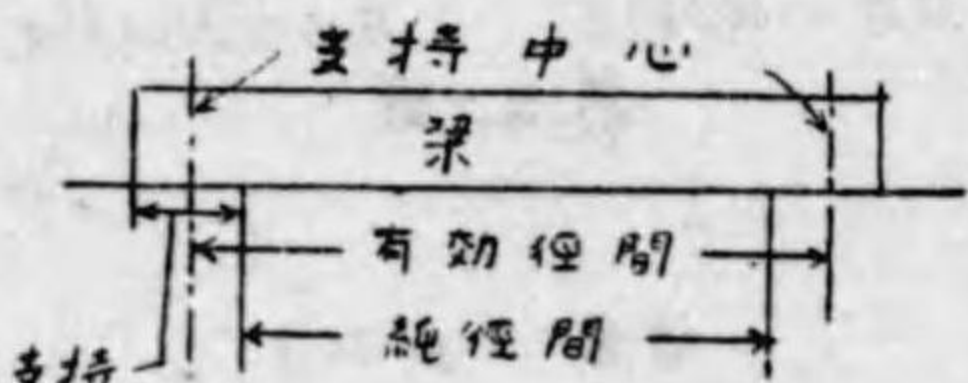 支持中心
梁
有効径間
純径間
支持